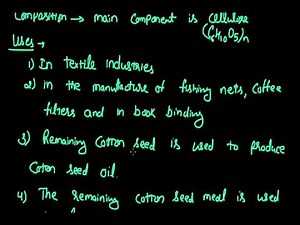 Composition → main component is cellulose
(C6H10O5)n
Uses →
1) In textile industries
2) in the manufacture of fishing nets, coffee
filters and in book binding
3) Remaining cotton seed is used to produce
Coton seed oil.
4) The remaining cotton seed meal is used